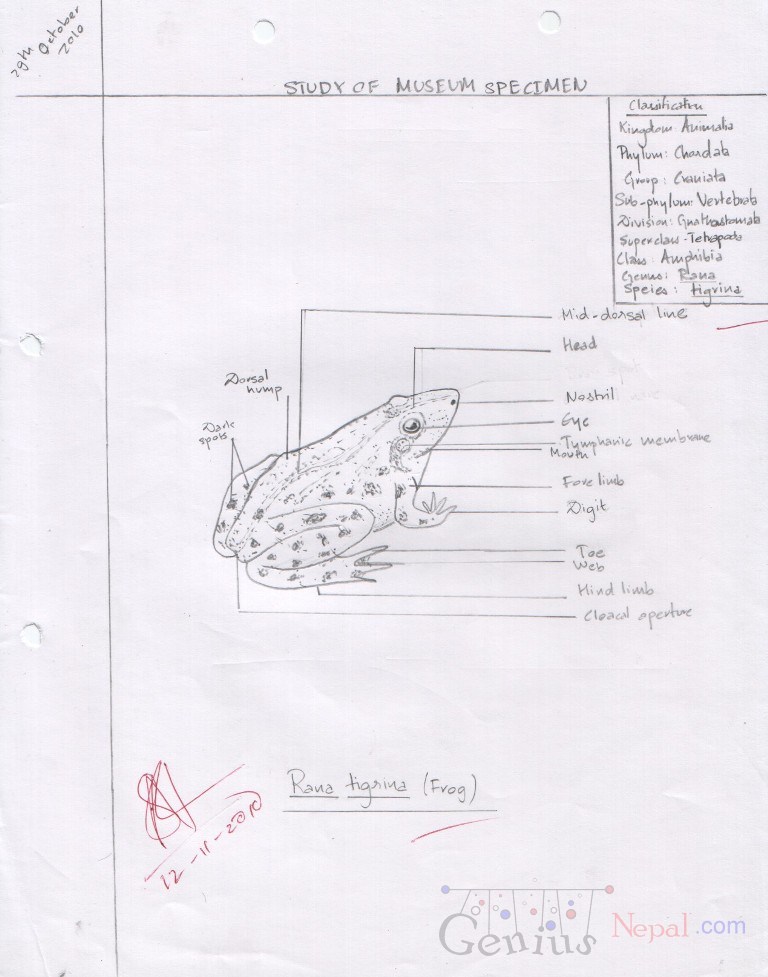 29th
October
2010
STUDY OF MUSEUM SPECIMEN
Classification
Kingdom: Animalia
Phylum: Chordata
Group: Craniata
Sub-phylum: Vertebrata
Division: Gnathostomata
Superclass-Tetrapoda
Class: Amphibia
Genus: Rana
Speies: tigrina
Mid-dorsal line
Head
Dorsal
hump
Nostril
Eye
Dark
spots
Tymphanic membrane
Mouth
Fore limb
Digit
Toe
Web
Hind limb
Cloacal aperture
Rana tigrina (Frog)
12-11-2010
Genius Nepal.com